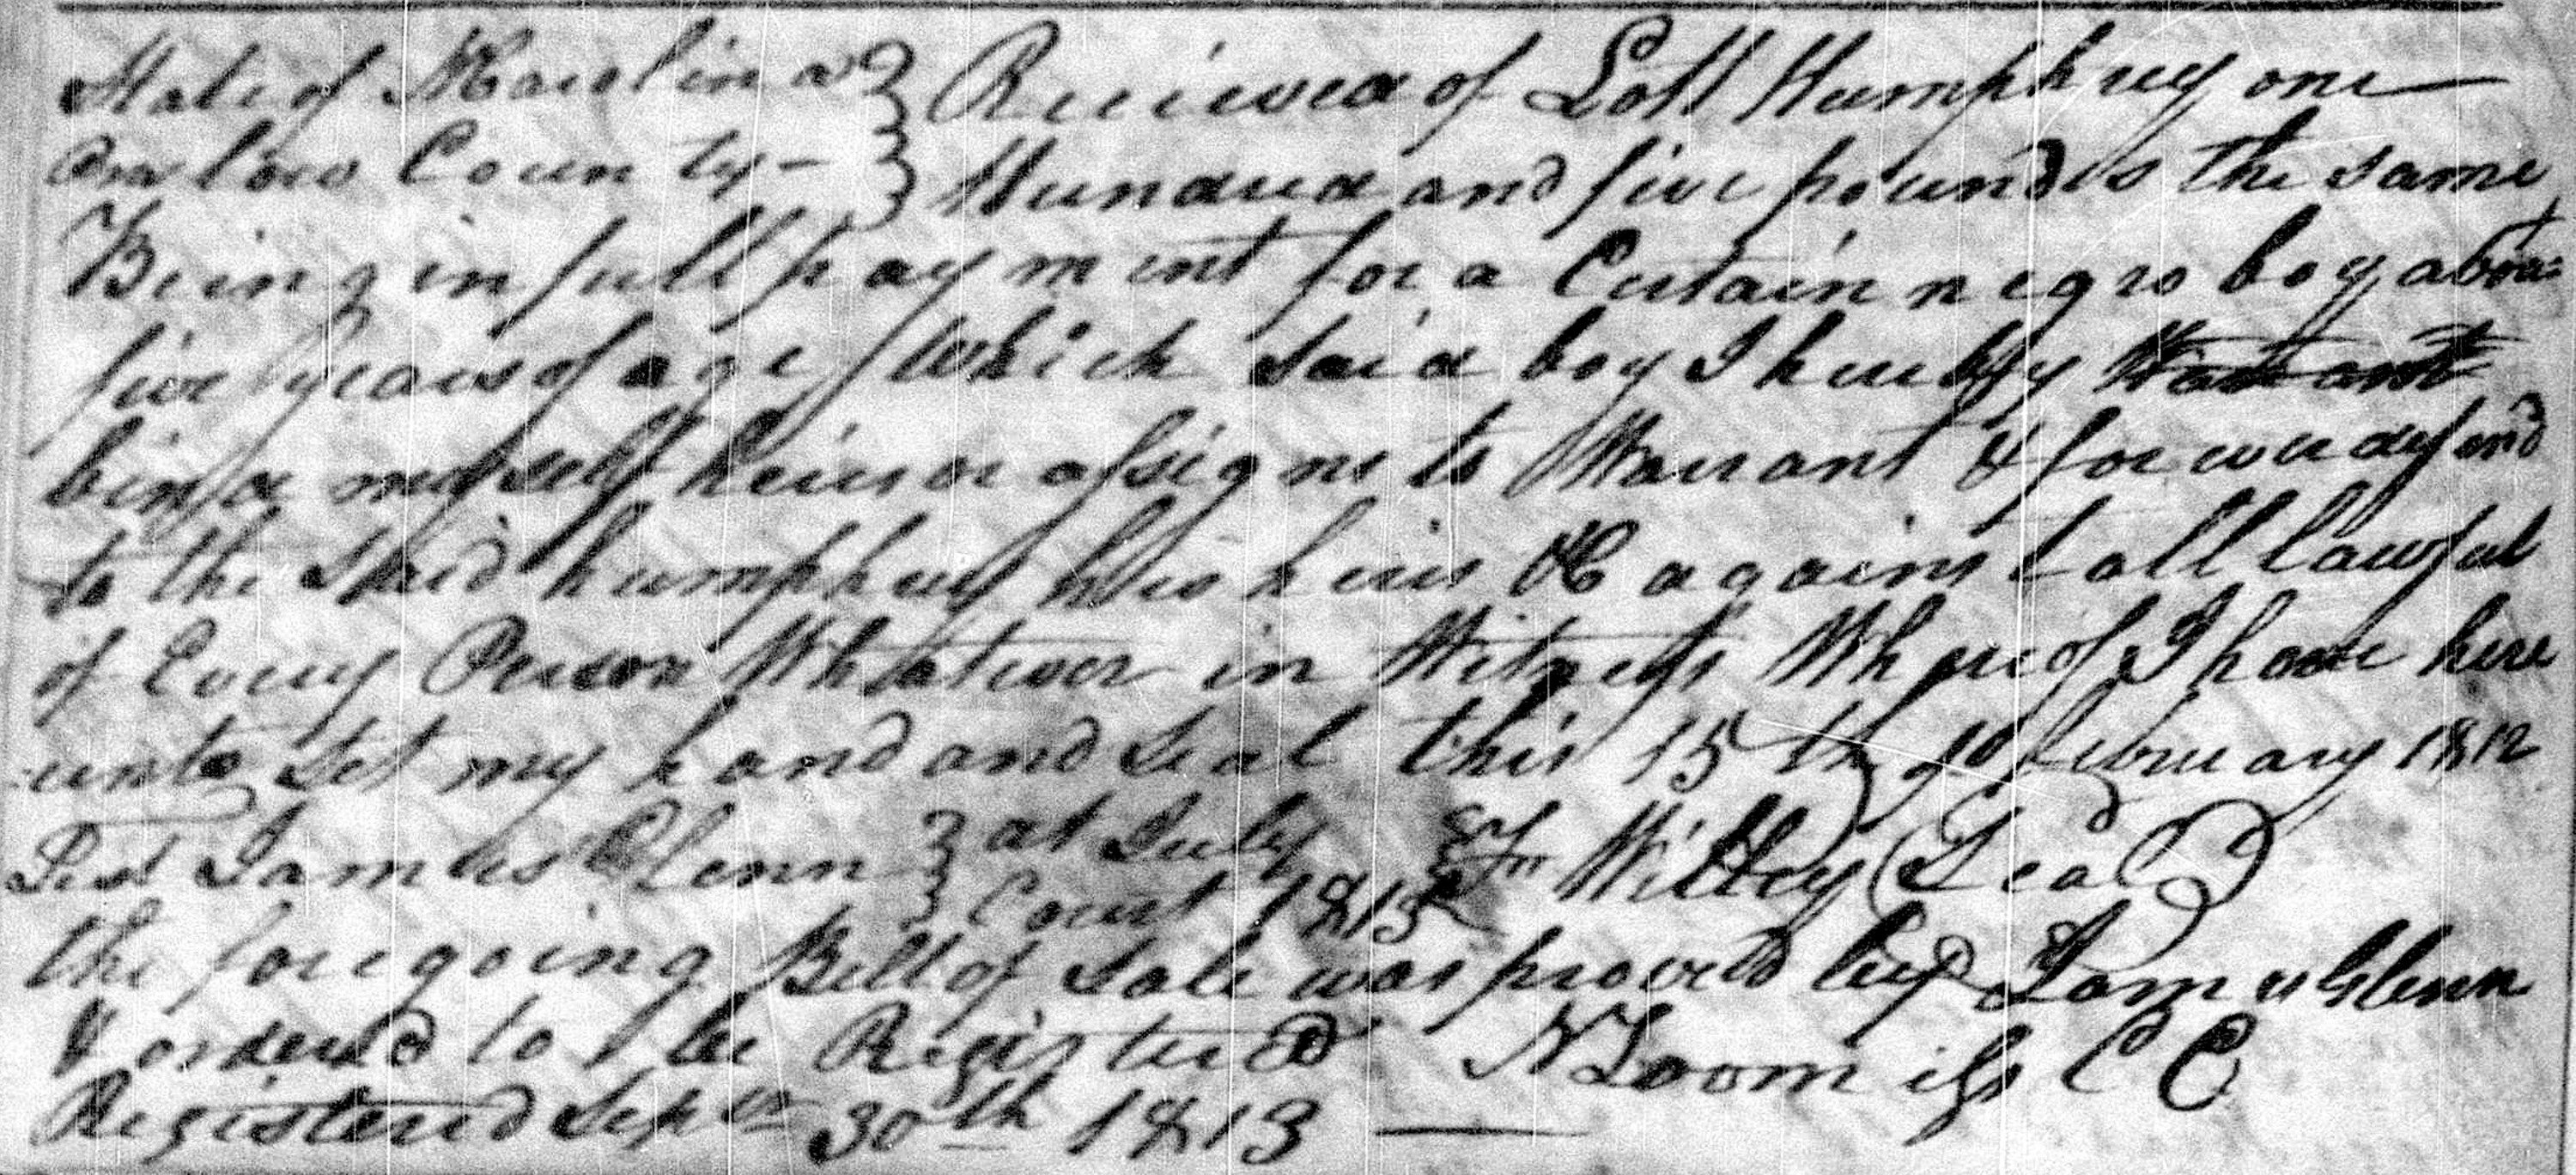 State of N Carolina } Received of Lott Humphrey one
Onslow County - } Hundred and five pounds the same
Being in full payment for a Certain negro boy about
five years of age which said boy I hereby Warrant
bind myself heirs or assigns to Warrant & forever defend
to the Said humphrey his heirs &C against all lawful
of Every Person Whatever in Witness Whereof I have here
unto Set my hand and Seal this 15th February 1812
Test James Glenn } at July Willey (Seal)
Court 1813
the foregoing Bill of Sale was proved by James Glenn
& ordered to be Registered N Loomiss CC
Registered Sept 30th 1813